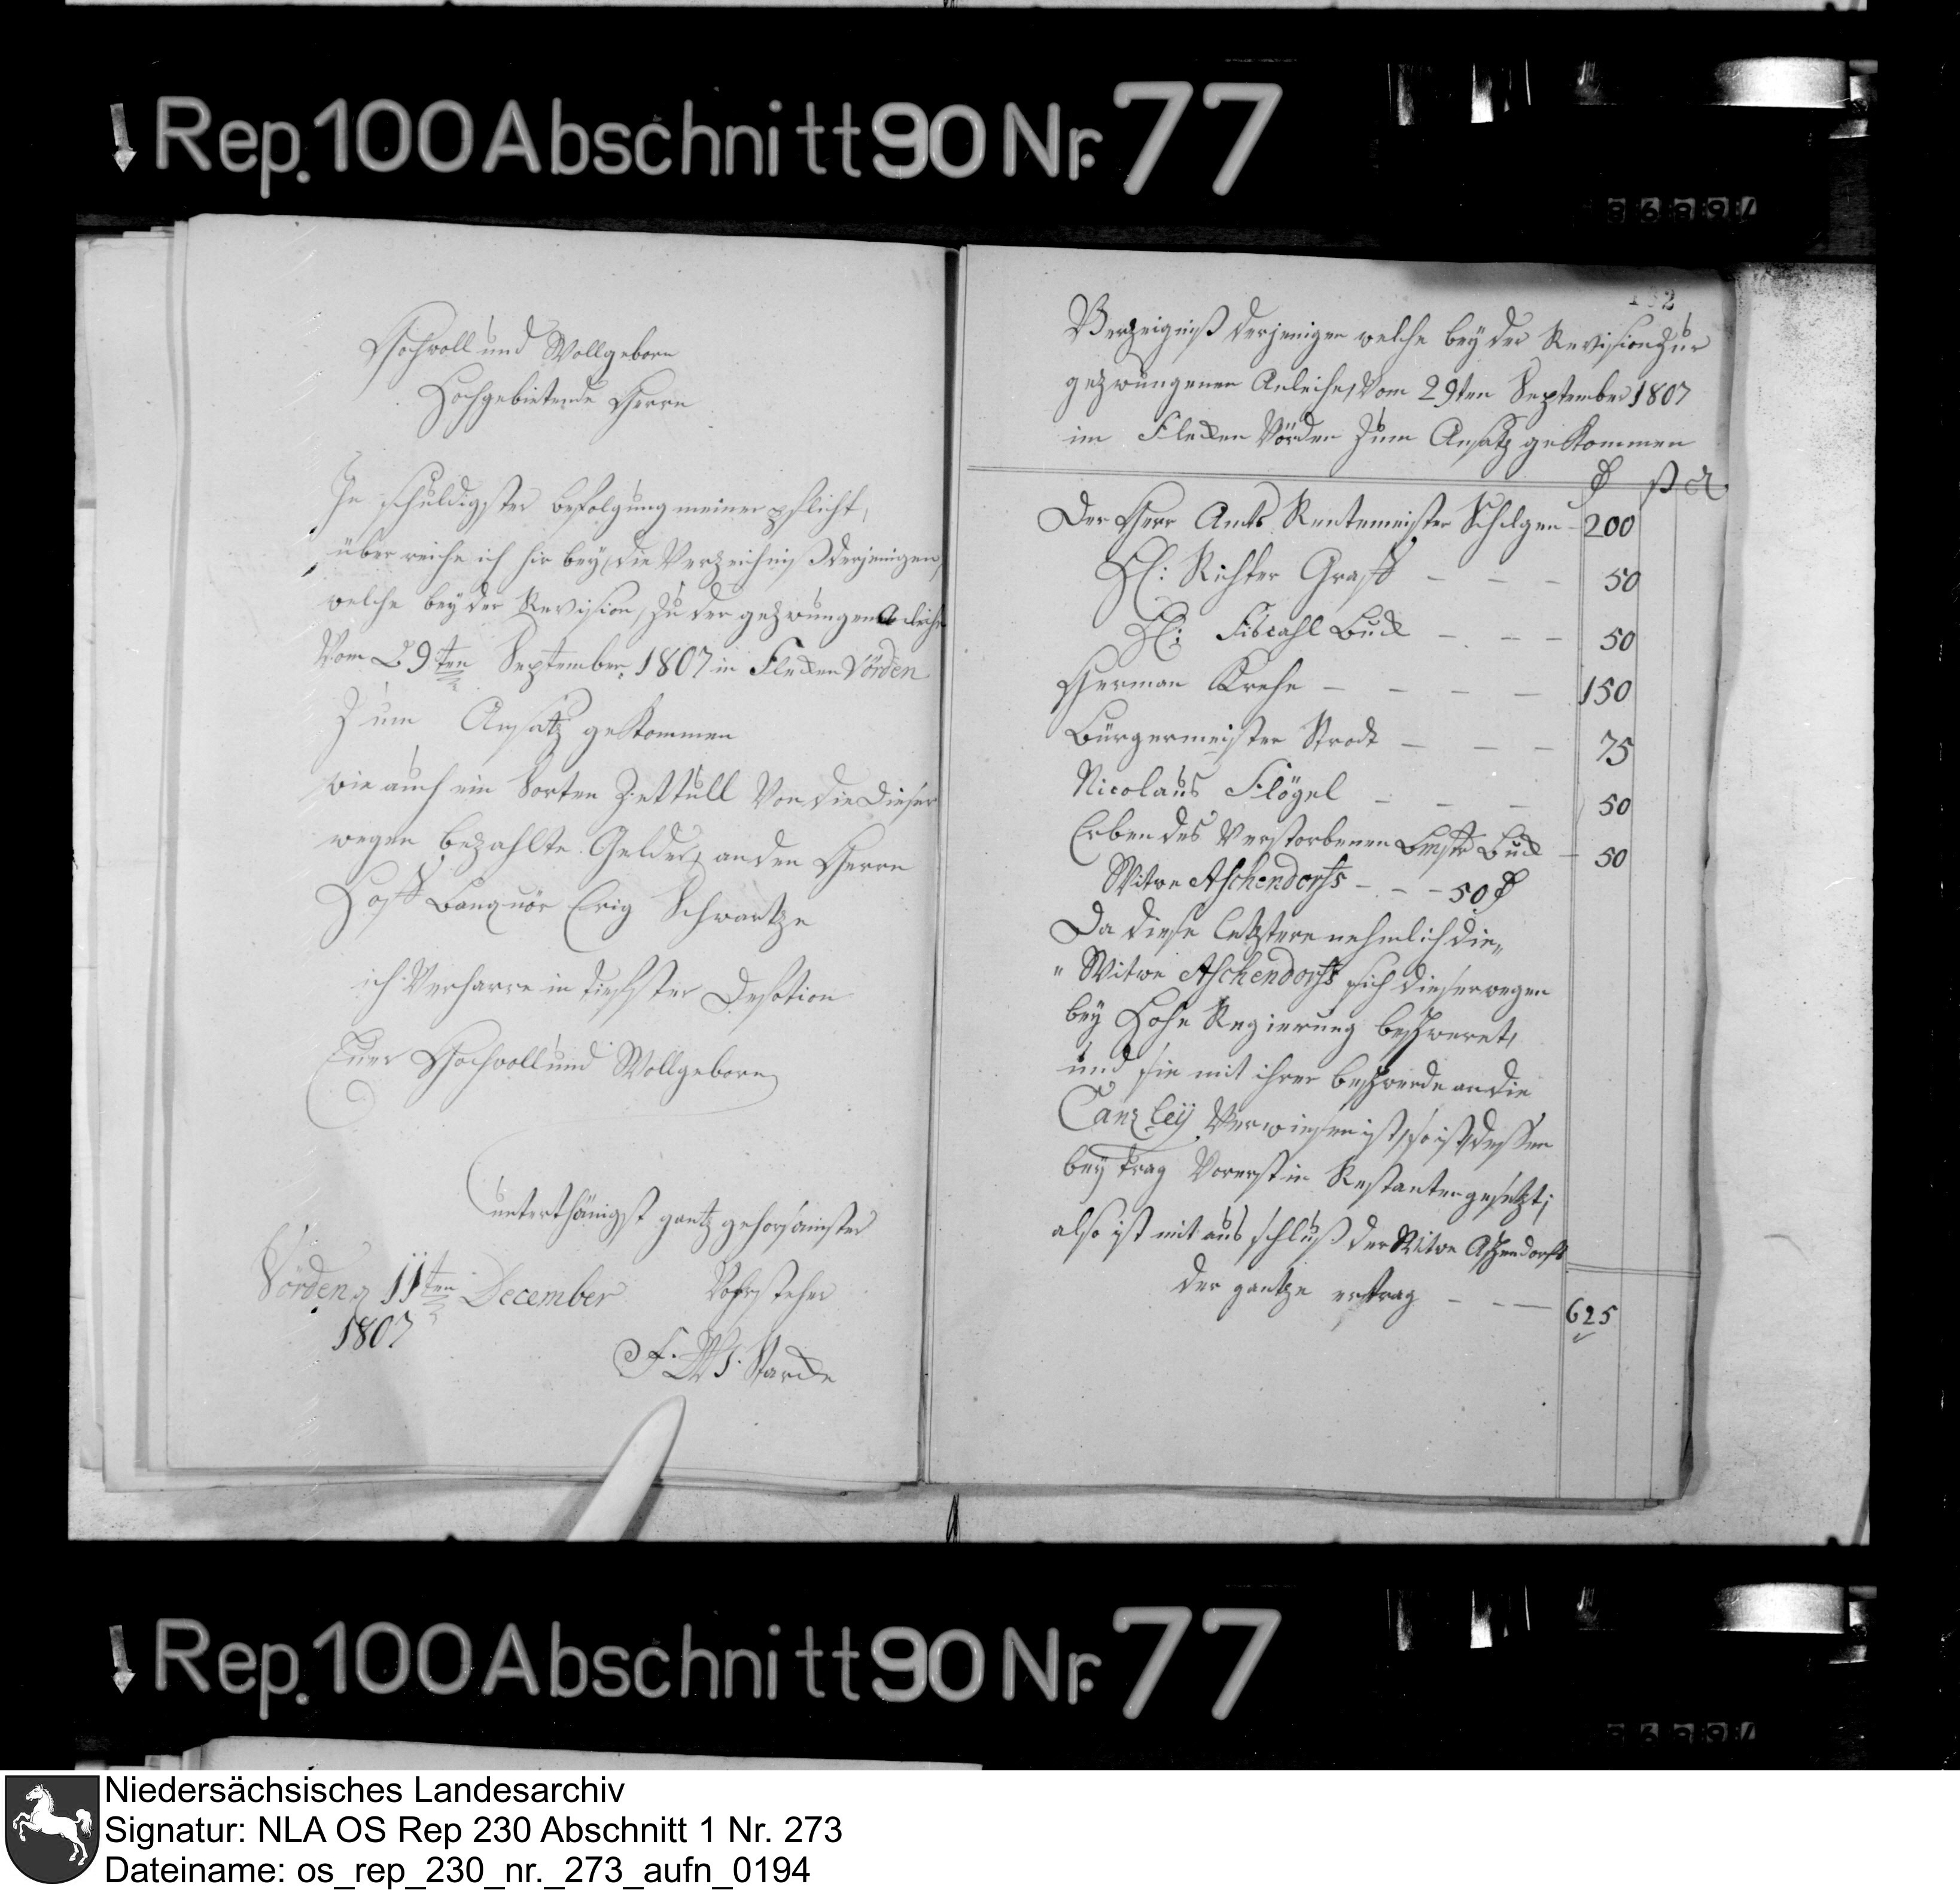 Rep. 100 Abschnitt 90 Nr. 77
Hochwoll und Wollgeborn
Hochgebietende Herrn
In schuldigster befolgung meiner pflicht,
über reiche ich hir bey, die Verzeichniß derjenigen,
welche bey der Revision, zu der gezwungen Anleihe
Vom 29ten September. 1807 in Flecken Vörden
Zum Ansatz gekommen
wie auch ein Sorten Zettull Von die dieser
wegen bezahlte Gelder, an den Herrn
Hoff Banquör Erig Schwartze
ich Verharre in tiefster Defotion
Euer Hochwoll und Wollgeborn
unterthänigst gantz gehorsamster
Vörden, 11ten December Vorsteher
1807
F. W. Starcke
Verzeigniß derjenigen welche bey der Revision Zur
gezwungenen Anleihe, Vom 29ten September 1807
im Flecken Vörden Zum Ansatz gekommen
ß d
Der Herr Amts Rentemeister Schelgen 200
H: Richter Graff - - - 50
H: Fiscahl Buck - - - 50
Herman Krehe - - - - 150
Bürgermeister Strodt - - - 75
Nicolaus Flögel - - - 50
Erben des Verstorbenen Bmstr Buck - 50
Witwe Aschendorfs - - - 50
Da diese letztere nehmlich die„
" Witwe Aschendorfs sich dieserwegen
bey Hohe Regierung beschweret,
und sie mit ihrer beschwerde an die
Canzleÿ Verwiesen ist, so ist dessen
beytrag Vorerst in Restanten gesetzt;
also ist mit aus schluß der Witwe Aschendorff
der gantze ertrag - - - 625
Rep. 100 Abschnitt 90 Nr. 77
Niedersächsisches Landesarchiv
Signatur: NLA OS Rep 230 Abschnitt 1 Nr. 273
Dateiname: os_rep_230_nr._273_aufn_0194